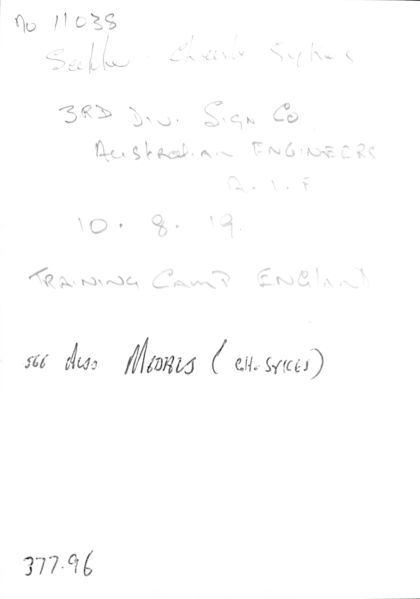 No 11038
Sapper Charles Sykes
3RD DIV. SIGN CO
AUSTRALIAN ENGINEERS
A.I.F
10. 8. 19.
TRAINING CAMP ENGLAND
SEE ALSO MEDALS (CH. SYKES)
377.96